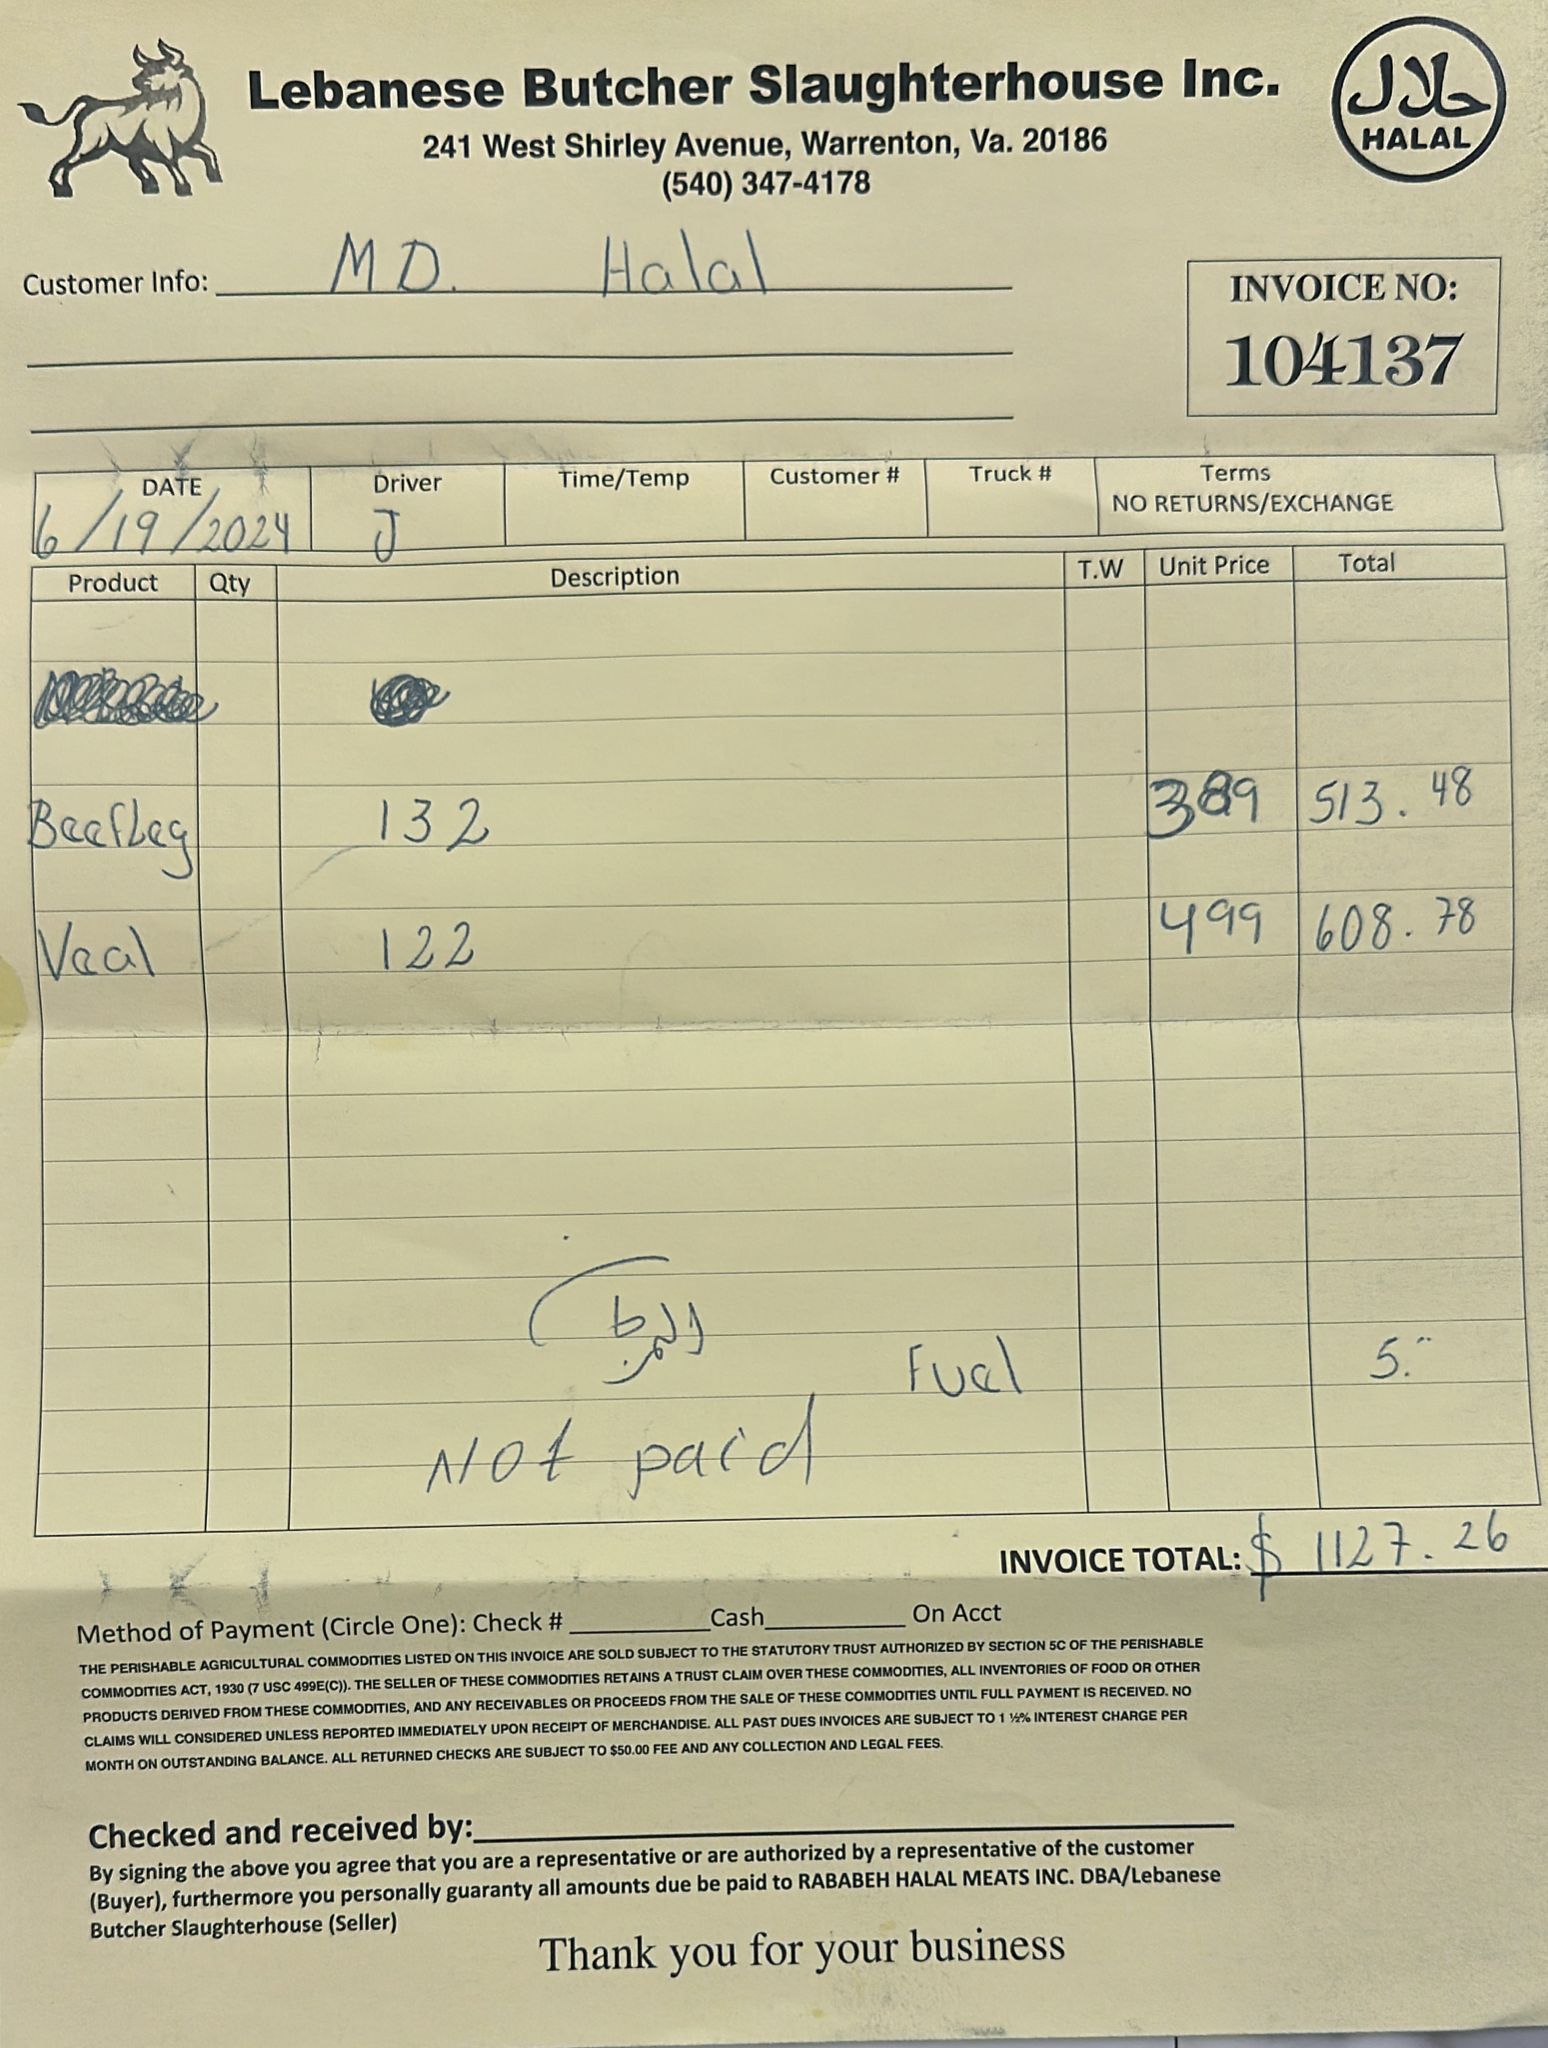 Lebanese Butcher Slaughterhouse Inc.
حلال
HALAL
241 West Shirley Avenue, Warrenton, Va. 20186
(540) 347-4178
Customer Info: MD. Halal
INVOICE NO:
104137
DATE Driver Time/Temp Customer # Truck # Terms
NO RETURNS/EXCHANGE
6/19/2024 J
Product Qty Description T.W Unit Price Total
BeefLeg 132 389 513.48
Veal 122 499 608.78
Fuel 5.
Not paid
INVOICE TOTAL: $ 1127.26
Method of Payment (Circle One): Check # Cash On Acct
THE PERISHABLE AGRICULTURAL COMMODITIES LISTED ON THIS INVOICE ARE SOLD SUBJECT TO THE STATUTORY TRUST AUTHORIZED BY SECTION 5C OF THE PERISHABLE
COMMODITIES ACT, 1930 (7 USC 499E(C)). THE SELLER OF THESE COMMODITIES RETAINS A TRUST CLAIM OVER THESE COMMODITIES, ALL INVENTORIES OF FOOD OR OTHER
PRODUCTS DERIVED FROM THESE COMMODITIES, AND ANY RECEIVABLES OR PROCEEDS FROM THE SALE OF THESE COMMODITIES UNTIL FULL PAYMENT IS RECEIVED. NO
CLAIMS WILL CONSIDERED UNLESS REPORTED IMMEDIATELY UPON RECEIPT OF MERCHANDISE. ALL PAST DUES INVOICES ARE SUBJECT TO 1 ½% INTEREST CHARGE PER
MONTH ON OUTSTANDING BALANCE. ALL RETURNED CHECKS ARE SUBJECT TO $50.00 FEE AND ANY COLLECTION AND LEGAL FEES.
Checked and received by:
By signing the above you agree that you are a representative or are authorized by a representative of the customer
(Buyer), furthermore you personally guaranty all amounts due be paid to RABABEH HALAL MEATS INC. DBA/Lebanese
Butcher Slaughterhouse (Seller)
Thank you for your business